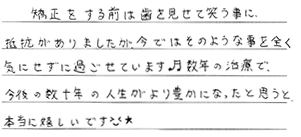 矯正をする前は歯を見せて笑う事に、
抵抗がありましたが、今ではそのような事を全く
気にせずに過ごせています♪月数年の治療で、
今後の数十年の人生がより豊かになったと思うと、
本当に嬉しいです^^★